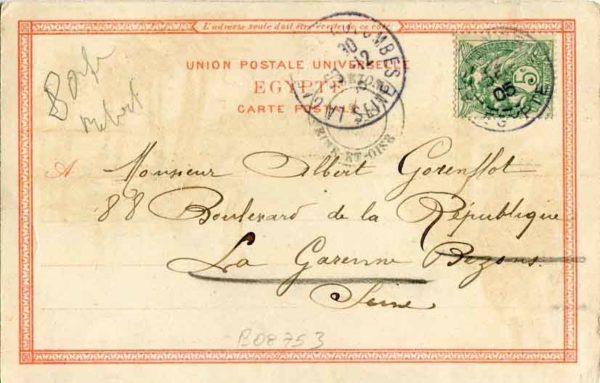 L'adresse seule doit être écrite de ce côté
UNION POSTALE UNIVERSELLE
EGYPTE
CARTE POSTALE
LA GARENNE COLOMBES
30
12
BEZONS
SEINE-ET-OISE
5
05
EGYPTE
A Monsieur Albert Gorenflot
88 Boulevard de la République
La Garenne Bezons
Seine
B08753